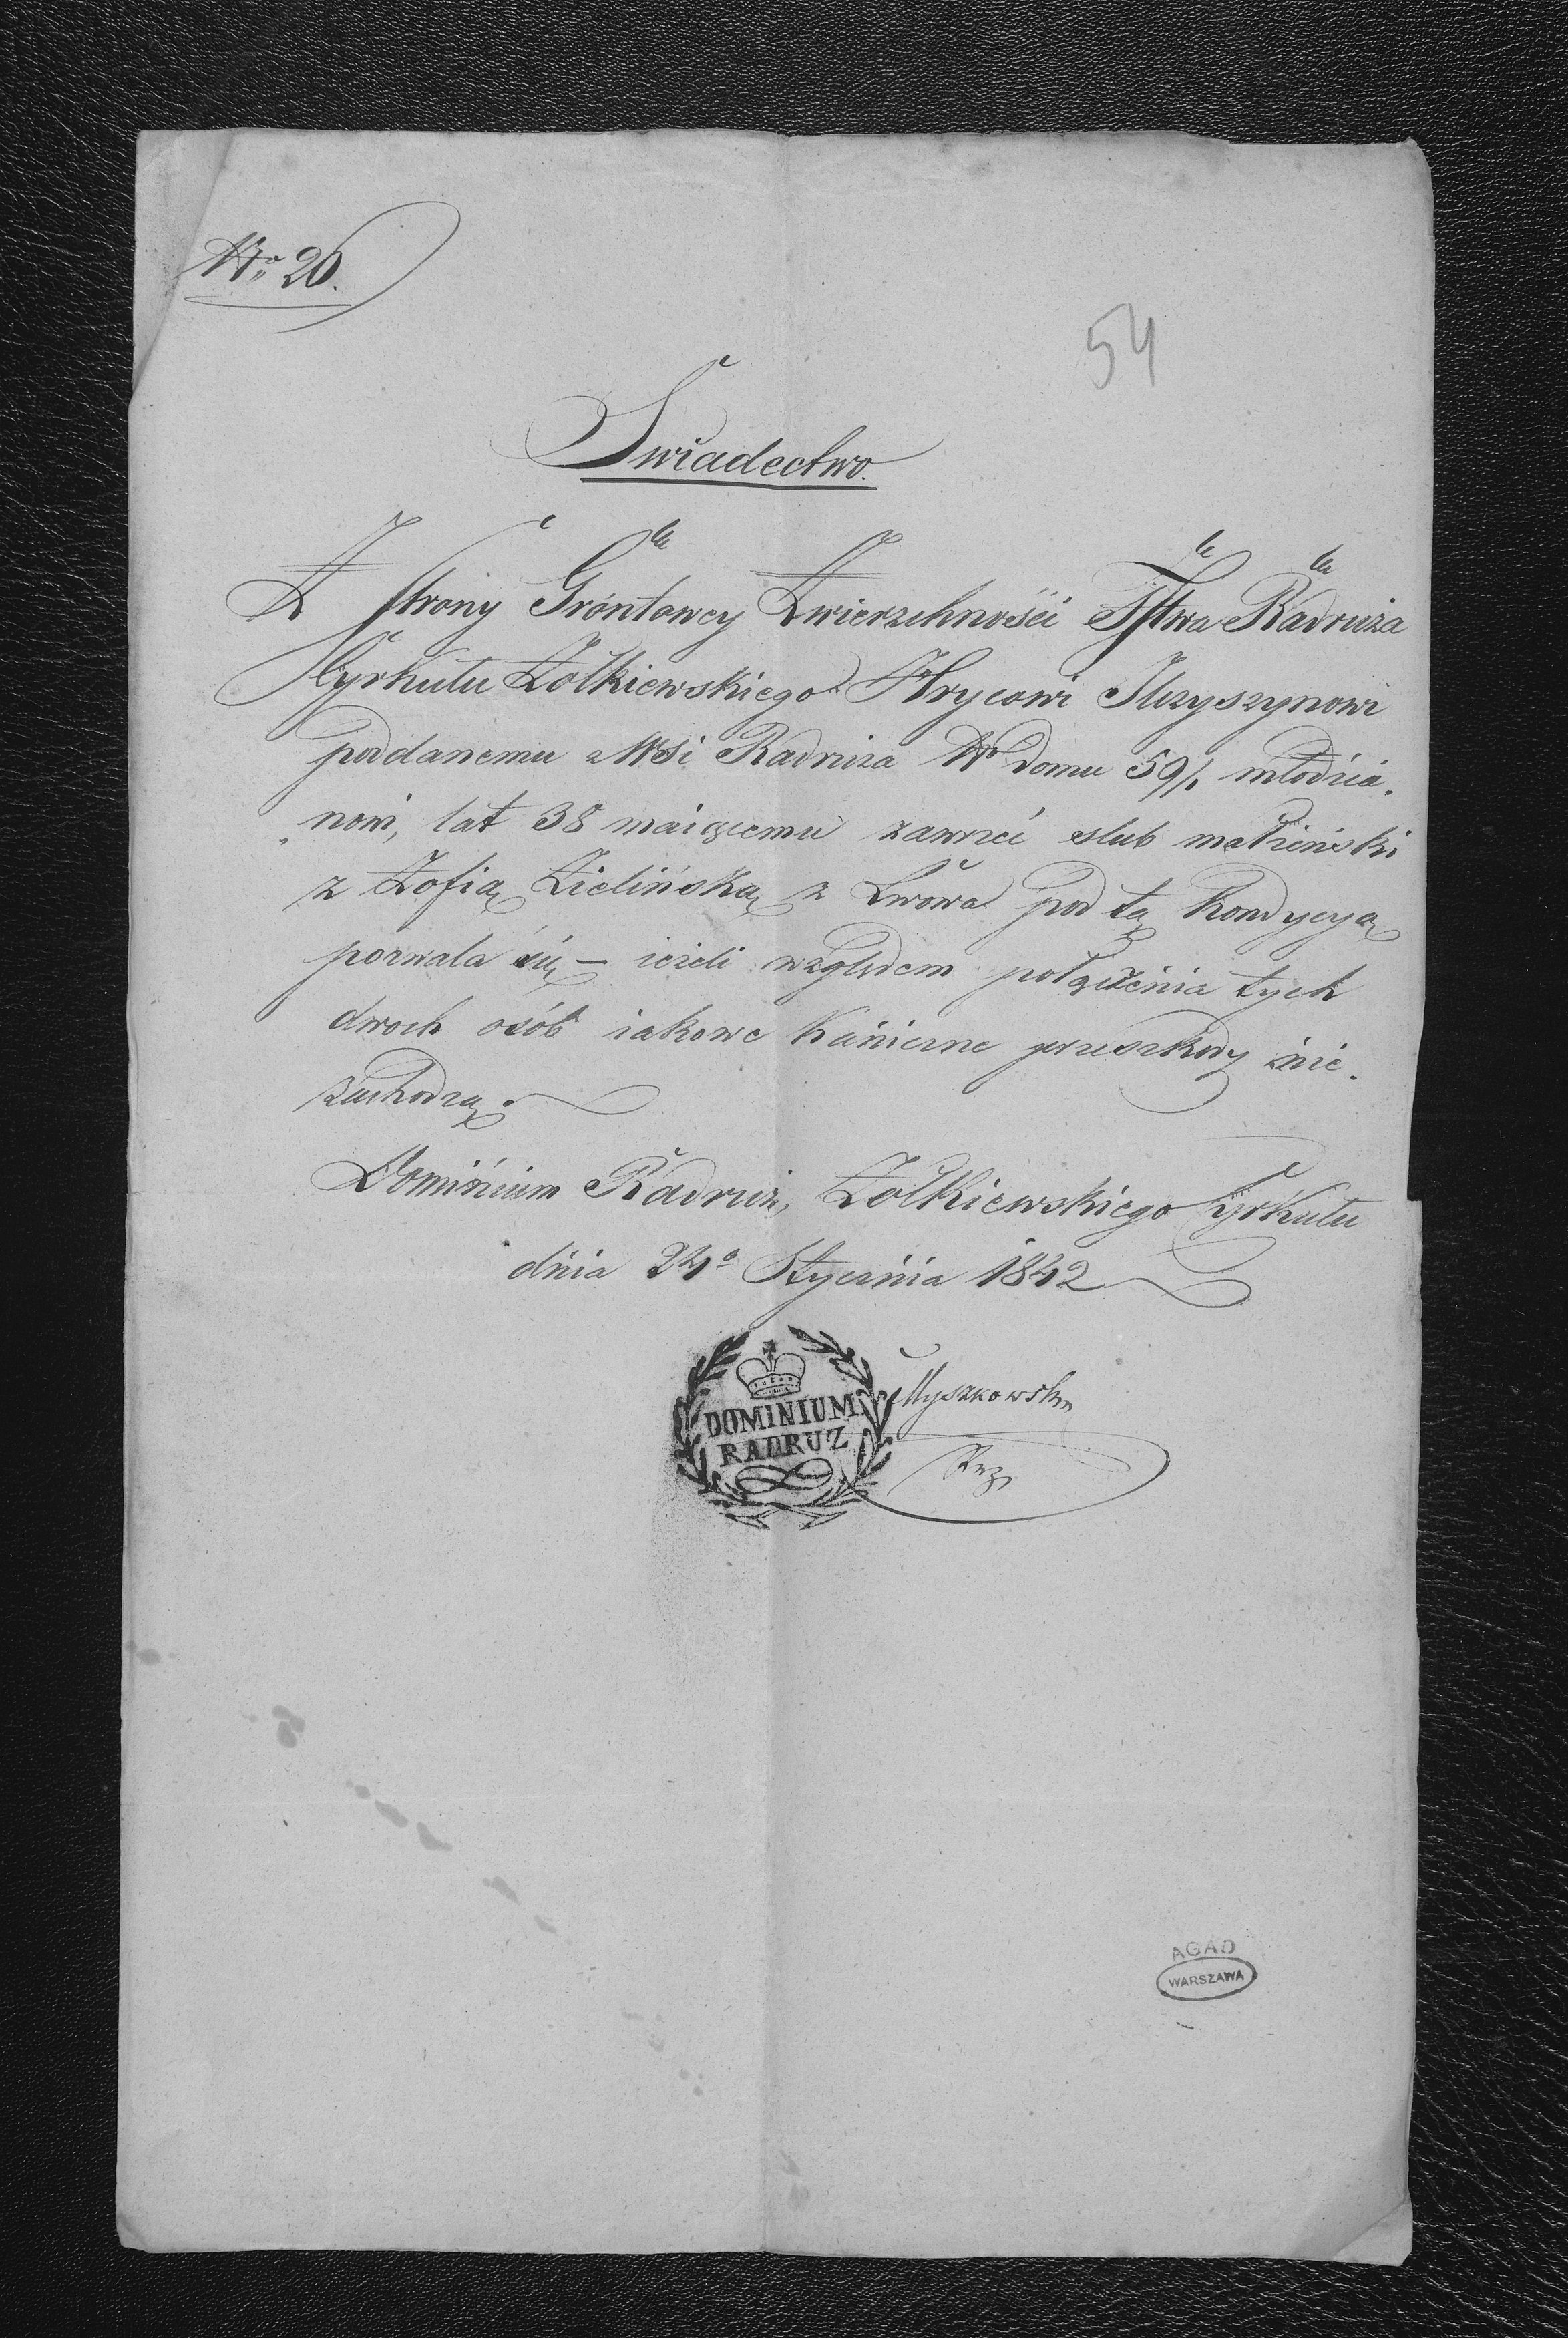 No 26.
54
Swiadectwo.
Z strony Gróntowey Zwierzchności Pstwa Radruża
Cyrkułu Żołkiewskiego Hrycowi Ilczyszynowi
poddanemu z Wsi Radruża No domu 59/1 młodzia„
„nowi, lat 38 maiącemu zawrzeć slub małżeński
z Zofią Zielińską z Lwowa pod tą kondycyą
pozwala się – ieżeli względem połączenia tych
dwoch osób iakowe kaniczne przeszkody nie„
zachodzą.
Dominium Radruż, Żołkiewskiego Cyrkułu
dnia 24o Stycznia 1842
DOMINIUM
RADRUZ
Myszkowski
AGAD
WARSZAWA